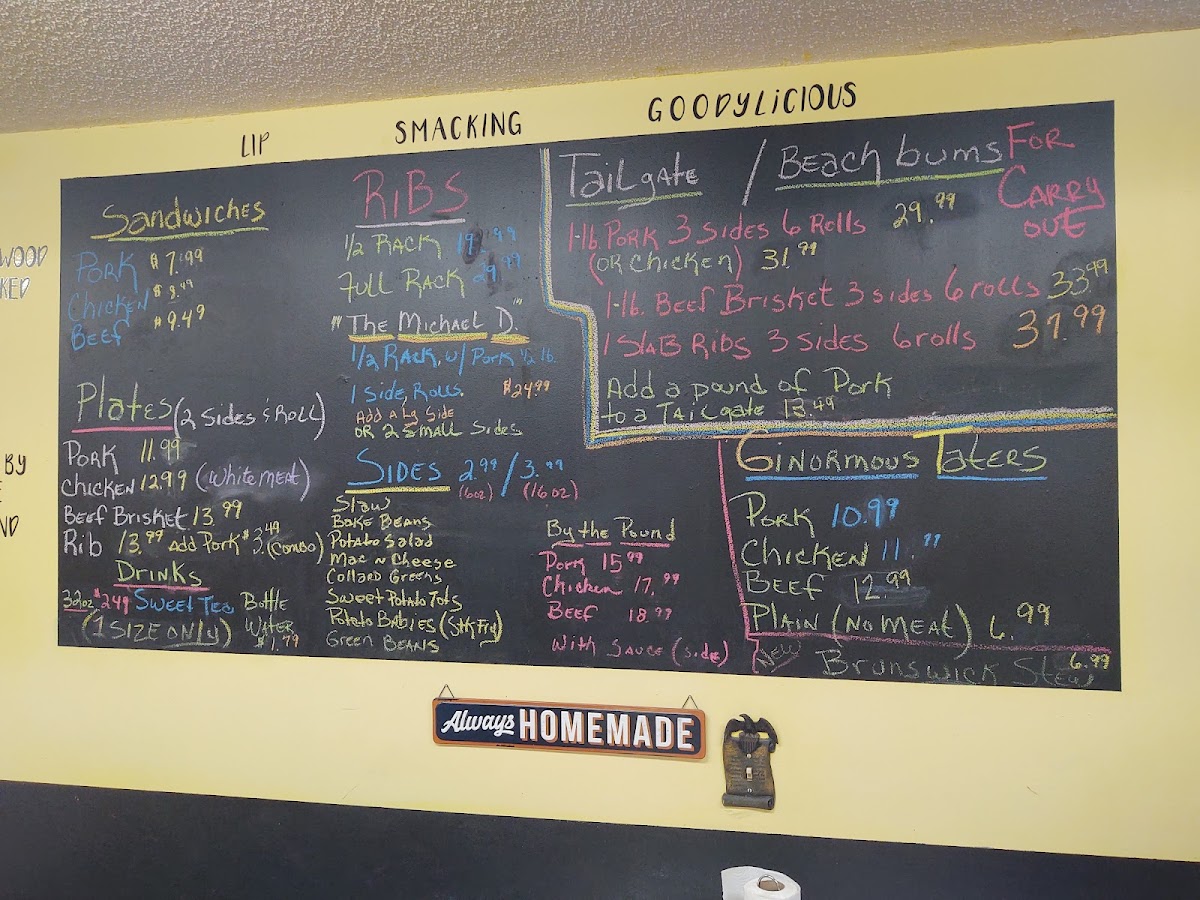 LIP SMACKING GOODYLICIOUS
WOOD
KED
BY
ND
Sandwiches
PORK $7.99
Chicken
Beef $9.49
Plates (2 Sides & Roll)
PORK 11.99
Chicken 12.99 (White meat)
Beef Brisket 13.99
Rib 13.99 Add Pork $3.49 (Combo)
Drinks
32oz $2.49 Sweet Tea
(1 SIZE ONLY)
Bottle
Water
$1.79
RiBS
1/2 RACK 19.99
Full RACK 29.99
"The Michael D."
1/2 RACK, w/ Pork
1 Side, Rolls. $24.99
Add a Lg Side
OR 2 Small Sides
Sides 2.99 / 3.99
(6oz) (16oz)
Slaw
Bake Beans
Potato Salad
Mac n Cheese
Collard Greens
Sweet Potato Tots
Potato Babies (Stk Fry)
Green Beans
By the Pound
Pork 15.99
Chicken 17.99
Beef 18.99
With Sauce (side)
Tailgate / Beach bums
FOR
CARRY
OUT
1-lb Pork 3 Sides 6 Rolls 29.99
(OR Chicken) 31.99
1-lb. Beef Brisket 3 sides 6 rolls 33.99
1 Slab Ribs 3 sides 6 rolls 37.99
Add a pound of Pork
to a Tailgate 13.49
Ginormous Taters
Pork 10.99
Chicken 11.99
Beef 12.99
Plain (No Meat) 6.99
New Brunswick Stew 6.99
Always HOMEMADE